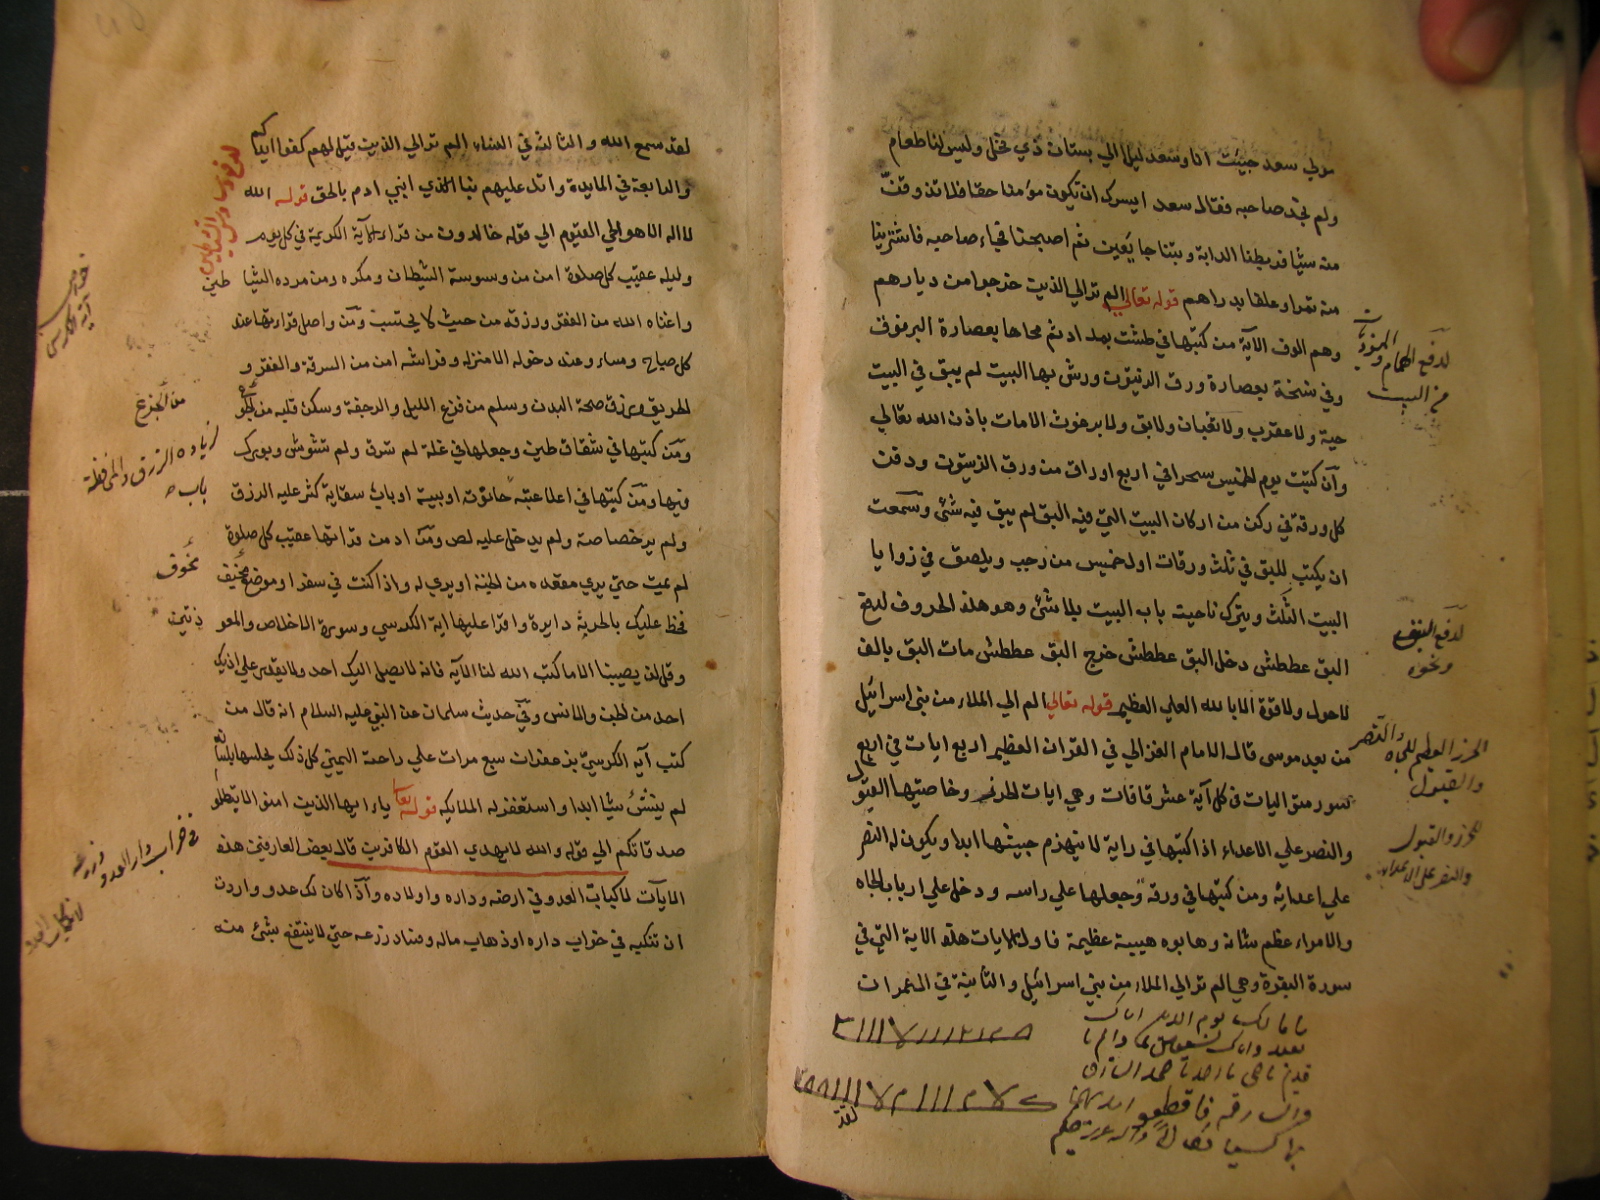 مولي سعد جيئت انا وسعد ليلا الي بستان ذي نخل وليس لنا طعام
ولم نجد صاحبه فقال سعد ايسرك ان تكون مؤمنا حقا فلا تذوقن
منه شيئا فربطنا الدابة وبتنا جايعين ثم اصبحنا فجاء صاحبه فاشترينا
منه تمرا وعلفا بدراهم قوله تعالي الم ترالي الذين خرجوا من ديارهم
وهم الوف الآية من كتبها في طشت بمداد ثم محاها بعصارة البرنوف
وفي نسخة بعصارة ورق الزيتون ورش بها البيت لم يبق في البيت
حية ولا عقرب ولا ثعبان ولا بق ولا برغوث الا مات باذن الله تعالي
وان كتبت يوم الخميس سحرا في اربع اوراق من ورق الزيتون ودفن
كل ورقة في ركن من اركان البيت التي فيه البق لم يبق فيه شئ وسمعت
ان يكتب للبق في ثلث ورقات اول خميس من رجب ويلصق في زوايا
البيت الثلث ويترك ناحيت باب البيت بلا شئ وهو هذه الحروف لدفع
البق عططش دخل البق عططش خرج البق عططش مات البق بالف
لا حول ولا قوة الا بالله العلي العظيم قوله تعالي الم الي الملاء من بني اسرائيل
من بعد موسى قال الامام الغزالي في القران العظيم اربع ايات في اربع
سور من اليات في كل آية عشر قافات وهي ايات الحرز وخاصيتها القبول
والنصر علي الاعداء اذا كتبها في راية لا ينهزم جيشها ابدا ويكون له النصر
علي اعدائه ومن كتبها في ورقة وجعلها علي راسه ودخل علي ارباب الجاه
والامراء عظم شانه وهابوه هيبة عظيمة فاول الايات هذه الاية التي في
سورة البقرة وهي الم ترالي الملاء من بني اسرائيل والثانية في ال عمران
لدفع الهوام والموذية
من البيت
لدفع البق
ونحوه
الحرز العظيم للجاه والنصر
والقبول
للحرز والقبول
والنصر على الاعداء
يا مالك يوم الدين اياك
نعبد واياك نستعين
لقد
لقد سمع الله والثالث في النساء الم ترالي الذين قيل لهم كفوا ايديكم
والرابعة في المايدة واتل عليهم نبا الذي ابني ادم بالحق قوله الله
لا اله الا هو الحي القيوم الي قوله خالدون من قراء الآية الكريمة في كل يوم
وليله عقيب كل صلوة امن من وسوسة الشيطان ومكره ومن مرده الشياطين
واغناه الله من الفقر ورزقه من حيث لا يحتسب ومن واصل قراءتها عند
كل صباح ومساء وعند دخوله الا منزله وفراشه امن من السرقة والفقر و
الحريق ورزق صحة البدن وسلم من فزع الليل والرجفة وسكن قلبه من
ومن كتبها في شقاق طين وجعلها في غلة لم تسرق ولم تشوش وبورك
فيها ومن كتبها في اعلا عتبة حانوت او بيت او باب سقاية كثر عليه الرزق
ولم ير خصاصة ولم يدخل عليه لص ومن ادمن قراتها عقيب كل صلوة
لم يمت حتي يري مقعده من الجنة او يري له واذا كنت في سفر او موضع مخيف
فخط عليك بالحربة دايرة واقرا عليها اية الكرسي وسورة الاخلاص والمعوذتين
وقل لن يصيبنا الا ما كتب الله لنا الآية فانه لا يصل اليك احد ولا يقدر علي اذيك
احد من الجن والانس وفي حديث سلمان عن النبي عليه السلام انه قال من
كتب آية الكرسي بزعفران سبع مرات علي راحته اليمني كل ذلك يلحسها بلسانه
لم ينسئ شيا ابدا واستغفر له الملايكه قوله تعا يا ايها الذين امنوا لا تبطلوا
صدقاتكم الي قوله والله لا يهدي القوم الكافرين قال بعض العارفين هذه
الايآت لنكيات العدو في ارضه وداره واولاده واذا كان لك عدو واردت
ان تنكيه في خراب داره او ذهاب ماله وفساد زرعه حتي لا ينتفع بشئ منه
خواص
آية الكرسي
من الجزع
لزيادة الرزق والمحافظة
باب
مخوف
في خراب دار العدو وزرعه